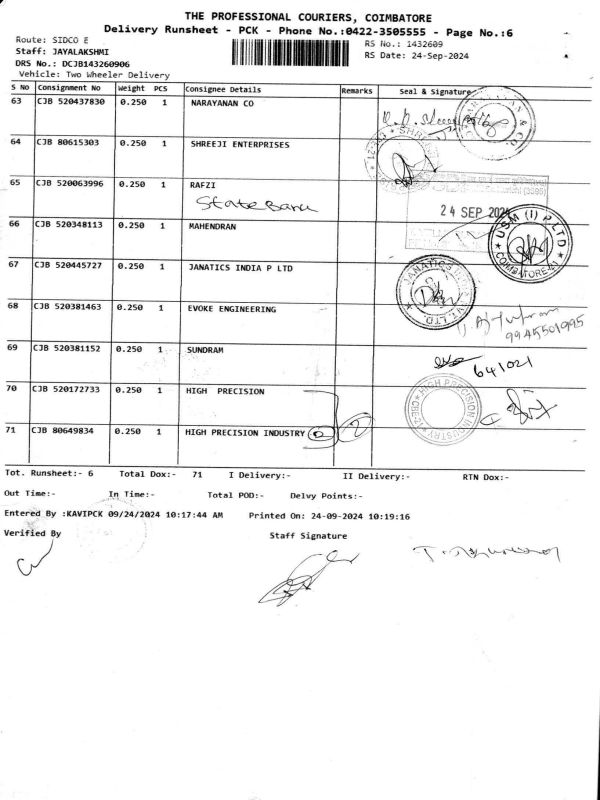 THE PROFESSIONAL COURIERS, COIMBATORE
Delivery Runsheet - PCK - Phone No.:0422-3505555 - Page No.:6
Route: SIDCO E
RS No.: 1432609
Staff: JAYALAKSHMI
RS Date: 24-Sep-2024
DRS No.: DCJB143260906
Vehicle: Two Wheeler Delivery
S No Consignment No Weight PCS Consignee Details Remarks Seal & Signature
63 CJB 520437830 0.250 1 NARAYANAN CO
64 CJB 80615303 0.250 1 SHREEJI ENTERPRISES
65 CJB 520063996 0.250 1 RAFZI
State Bank
24 SEP 2024
66 CJB 520348113 0.250 1 MAHENDRAN
USM (I) P LTD
COIMBATORE
67 CJB 520445727 0.250 1 JANATICS INDIA P LTD
JANATICS
68 CJB 520381463 0.250 1 EVOKE ENGINEERING
9945501995
69 CJB 520381152 0.250 1 SUNDRAM
641021
70 CJB 520172733 0.250 1 HIGH PRECISION
HIGH PRECISION INDUSTRY
71 CJB 80649834 0.250 1 HIGH PRECISION INDUSTRY 2
Tot. Runsheet:- 6 Total Dox:- 71 I Delivery:- II Delivery:- RTN Dox:-
Out Time:- In Time:- Total POD:- Delvy Points:-
Entered By :KAVIPCK 09/24/2024 10:17:44 AM Printed On: 24-09-2024 10:19:16
Verified By Staff Signature